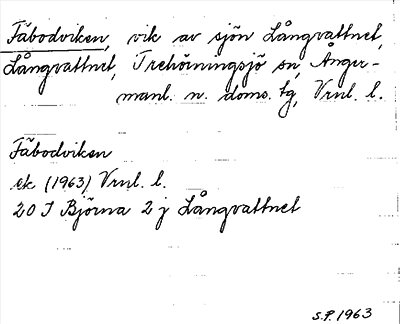 Fäbodviken, vik av sjön Långvattnet,
Långvattnet, Trehörningsjö sn, Ånger-
manl. n. doms. tg, Vrnl. l.
Fäbodviken
ek (1963) Vrnl. l.
20 I Björna 2 j Långvattnet
S.P. 1963